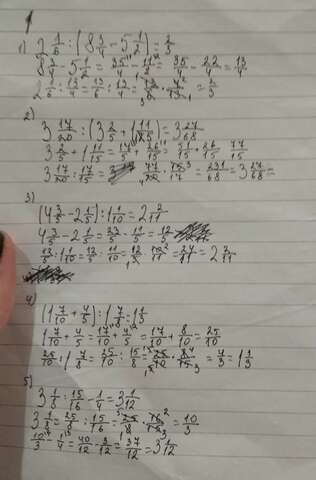 1) 2 1/6 : (8 3/4 - 5 1/2) = 2/3
8 3/4 - 5 1/2 = 35/4 - 11/2 = 35/4 - 22/4 = 13/4
2 1/6 : 13/4 = 13/6 : 13/4 = 13/6 · 4/13 = 2/3
2)
3 17/20 : (3 2/5 + 1 11/15) = 3 27/68
3 2/5 + 1 11/15 = 17/5 + 26/15 = 51/15 + 26/15 77/15
3 17/20 : 17/15 = 77/20 · 15/17 = 231/68 = 3 27/68 =
3)
(4 3/5 - 2 1/5) : 1 1/10 = 2 2/11
4 3/5 - 2 1/5 = 23/5 - 11/5 = 12/5
12/5 : 1 1/10 = 12/5 : 11/10 = 12/5 · 10/11 = 24/11 = 2 2/11
4)
(1 7/10 + 4/5) : 1 7/8 = 1 1/3
1 7/10 + 4/5 = 17/10 + 4/5 = 17/10 + 8/10 = 25/10
25/10 : 1 7/8 = 25/10 : 15/8 = 25/10 · 8/15 = 4/3 = 1 1/3
5)
3 1/8 : 15/16 - 1/4 = 3 1/12
3 1/8 = 25/8 : 15/16 = 25/8 · 16/15 = 10/3
10/3 - 1/4 = 40/12 - 3/12 = 37/12 = 3 1/12